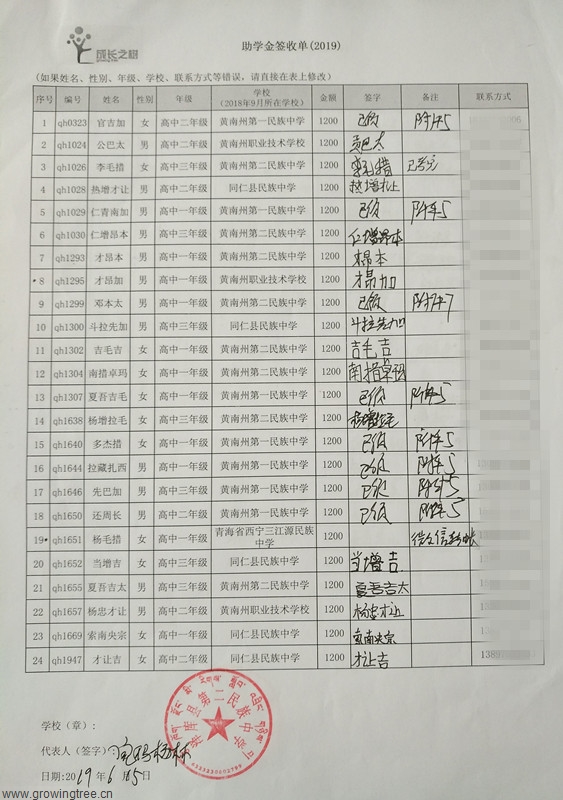 成长之树
助学金签收单(2019)
(如果姓名、性别、年级、学校、联系方式等错误,请直接在表上修改)
序号 编号 姓名 性别 年级 学校 (2018年9月所在学校) 金额 签字 备注 联系方式
1 qh0323 官吉加 女 高中二年级 黄南州第一民族中学 1200 已领 附件5
2 qh1024 公巴太 男 高中二年级 黄南州职业技术学校 1200 贡巴太
3 qh1026 李毛措 女 高中三年级 黄南州第二民族中学 1200 李毛措
4 qh1028 热增才让 男 高中二年级 同仁县民族中学 1200 热增才让
5 qh1029 仁青南加 男 高中一年级 黄南州第一民族中学 1200 已领 附件5
6 qh1030 仁增昂本 男 高中三年级 黄南州第二民族中学 1200 仁增昂本
7 qh1293 才昂本 男 高中一年级 黄南州第二民族中学 1200 才昂本
8 qh1295 才昂加 男 高中一年级 黄南州职业技术学校 1200 才昂加
9 qh1299 邓本太 男 高中二年级 黄南州第二民族中学 1200 已领 附件7
10 qh1300 斗拉先加 男 高中三年级 同仁县民族中学 1200 斗拉先加
11 qh1302 吉毛吉 女 高中一年级 黄南州第二民族中学 1200 吉毛吉
12 qh1304 南措卓玛 女 高中二年级 黄南州第二民族中学 1200 南措卓玛
13 qh1307 夏吾吉毛 女 高中二年级 黄南州第一民族中学 1200 已领 附件5
14 qh1638 杨增拉毛 女 高中三年级 黄南州第二民族中学 1200
15 qh1640 多杰措 女 高中一年级 黄南州第一民族中学 1200 已领 附件5
16 qh1644 拉藏扎西 男 高中一年级 黄南州第一民族中学 1200 已领 附件5
17 qh1646 先巴加 男 高中三年级 黄南州第一民族中学 1200 已领 附件5
18 qh1650 还周长 男 高中二年级 黄南州第一民族中学 1200 已领 附件5
19 qh1651 杨毛措 女 高中一年级 青海省西宁三江源民族中学 1200 微信转帐
20 qh1652 当增吉 女 高中三年级 同仁县民族中学 1200 当增吉
21 qh1655 夏吾吉太 男 高中三年级 黄南州第二民族中学 1200 夏吾吉太
22 qh1657 杨忠才让 男 高中二年级 黄南州职业技术学校 1200 杨忠才让
23 qh1669 索南央宗 女 高中一年级 同仁县民族中学 1200 索南央宗
24 qh1947 才让吉 女 高中二年级 同仁县民族中学 1200 才让吉
学校(章):
第二民族中学
代表人(签字):
日期:2019年6月15日
www.growingtree.cn